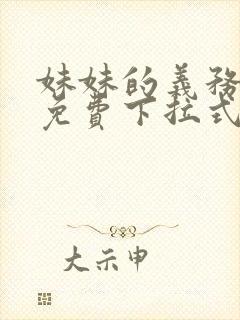 妹妹的義務
免費下拉式
大示申